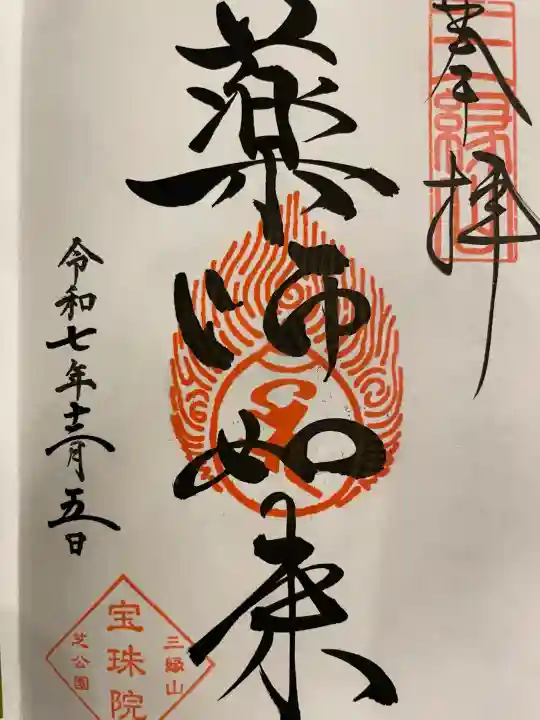 奉拝
三縁山
薬師如来
令和七年十二月五日
三縁山
宝珠院
芝公園